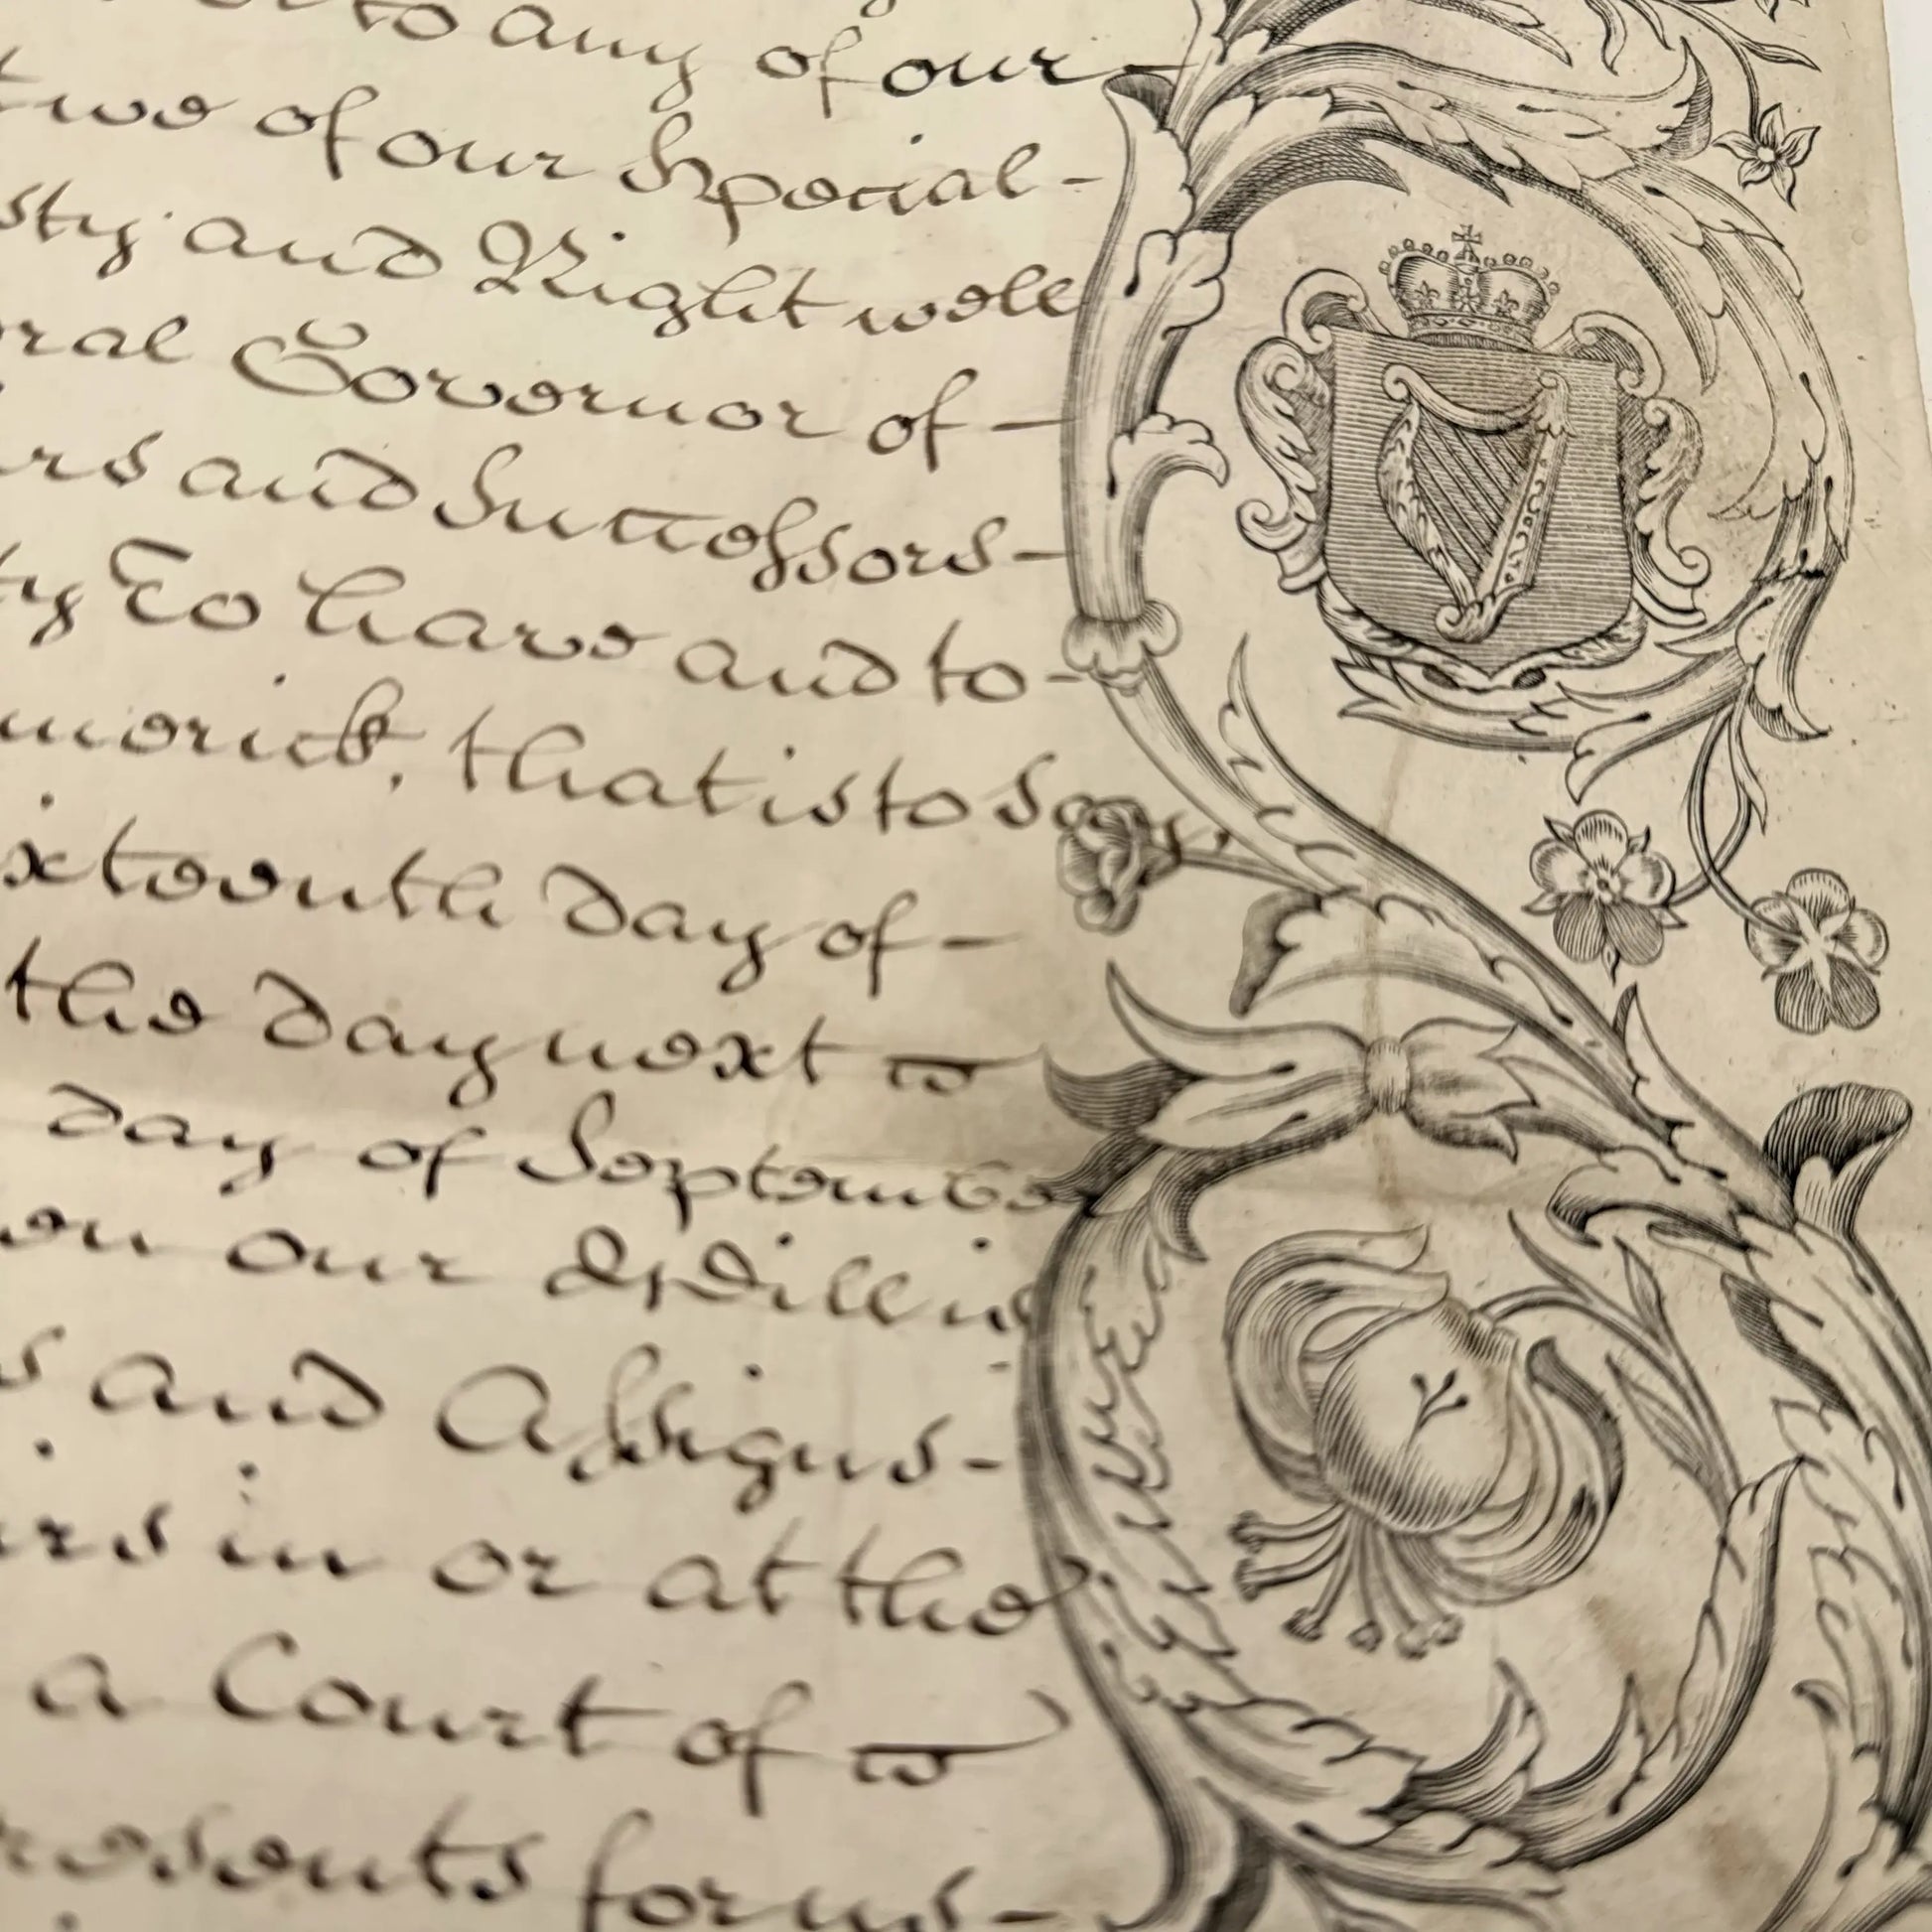 to any of our
two of our Special-
sty and Right well
ral Governor of-
rs and Successors-
ty To have and to-
merick, that is to say
xteenth day of-
the day next
day of September
our Will
and Assigns-
rs in or at the
a Court of
resents for us-